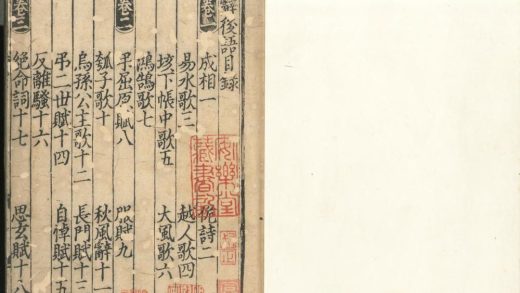 辭後語目錄
卷一 成相一 佹詩二
易水歌三 越人歌四
垓下帳中歌五 大風歌六
鴻鵠歌七
卷二 弔屈原賦八 服賦九
瓠子歌十 秋風辭十一
烏孫公主歌十二 長門賦十三
弔二世賦十四 自悼賦十五
反離騷十六
卷三 絕命詞十七 思玄賦十八